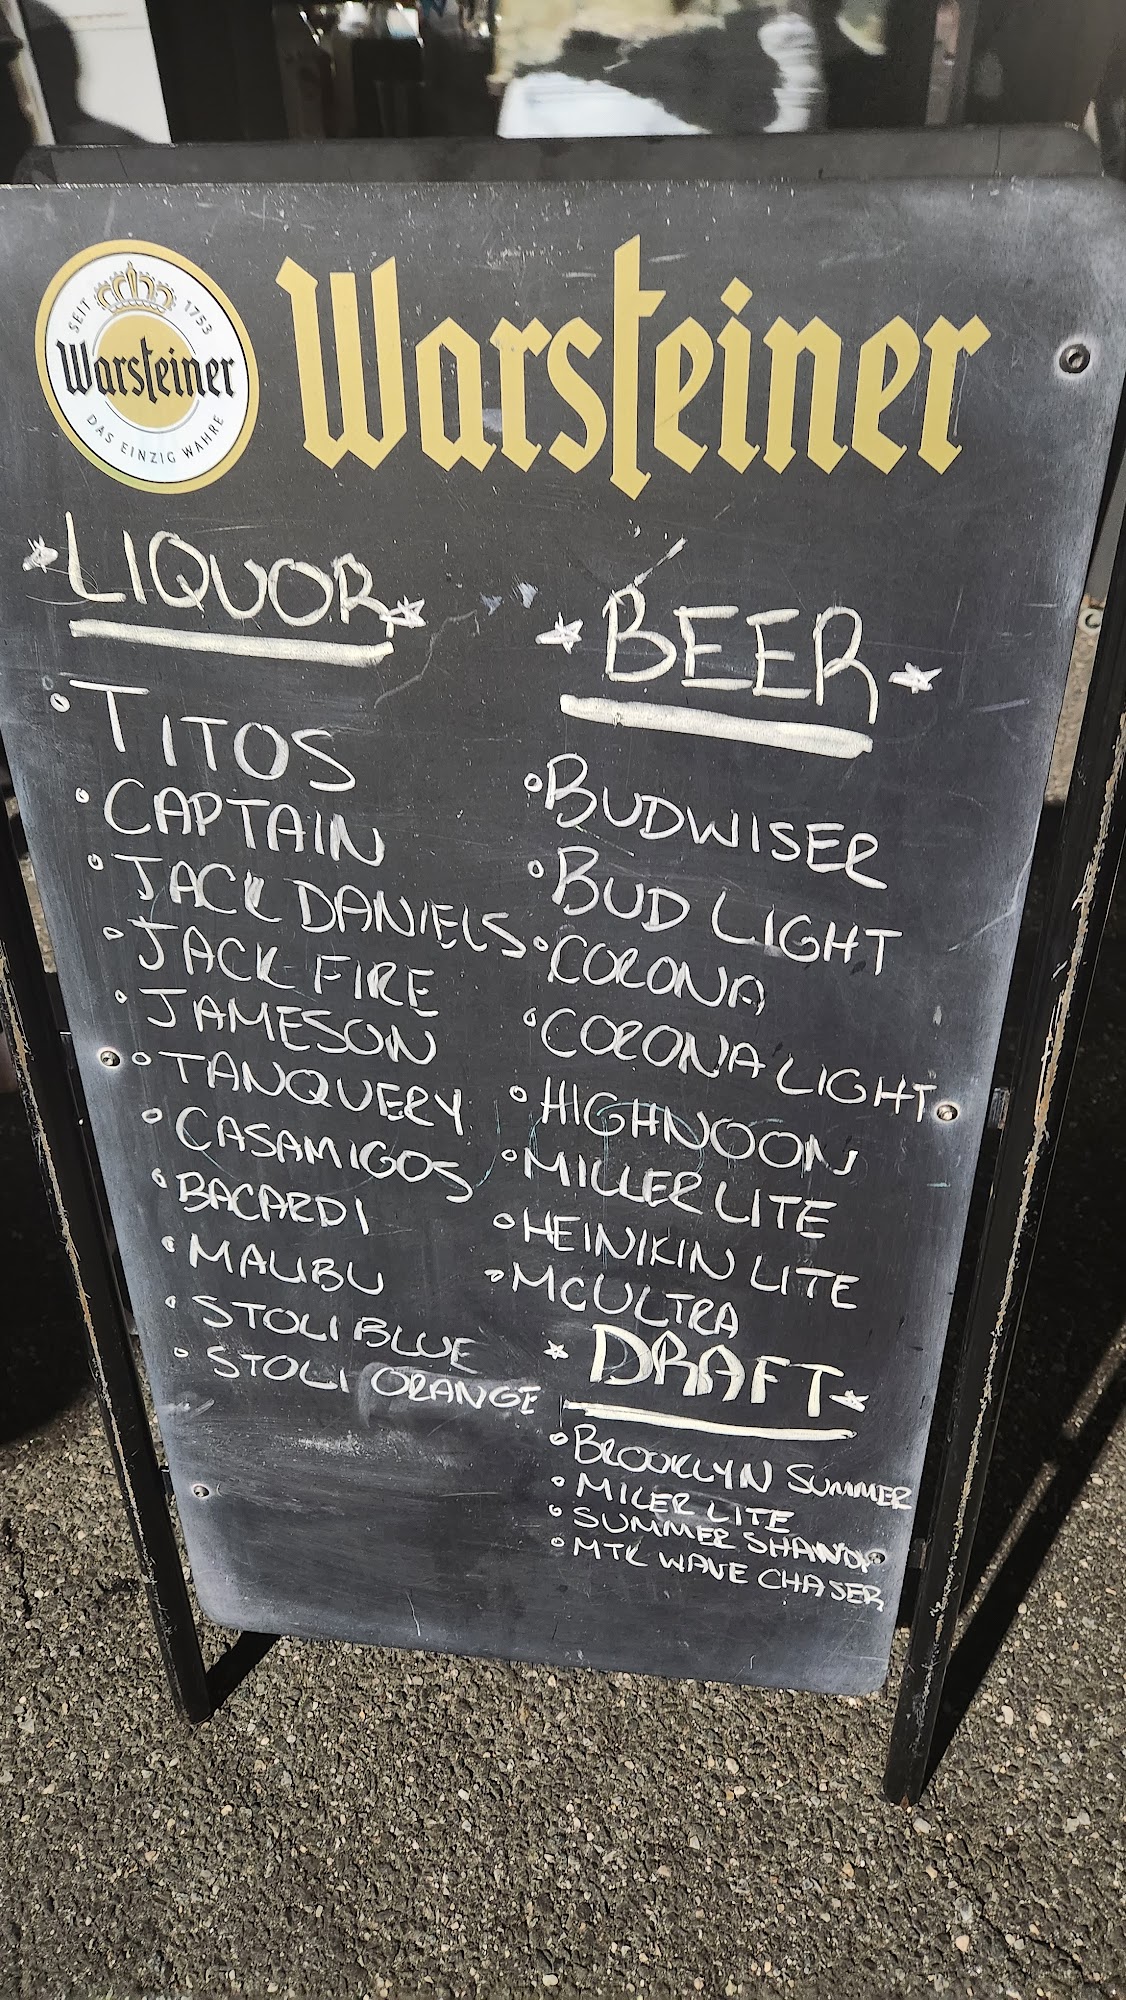 SEIT 1753
Warsteiner
DAS EINZIG WAHRE
Warsteiner
LIQUOR
TITOS
CAPTAIN
JACK DANIELS
JACK FIRE
JAMESON
TANQUERY
CASAMIGOS
BACARDI
MALIBU
STOLI BLUE
STOLI ORANGE
BEER
BUDWISER
BUD LIGHT
CORONA
CORONA LIGHT
HIGHNOON
MILLER LITE
HEINIKIN LITE
MCULTRA
DRAFT
BROOKLYN SUMMER
MILER LITE
SUMMER SHANDY
MTK WAVE CHASER